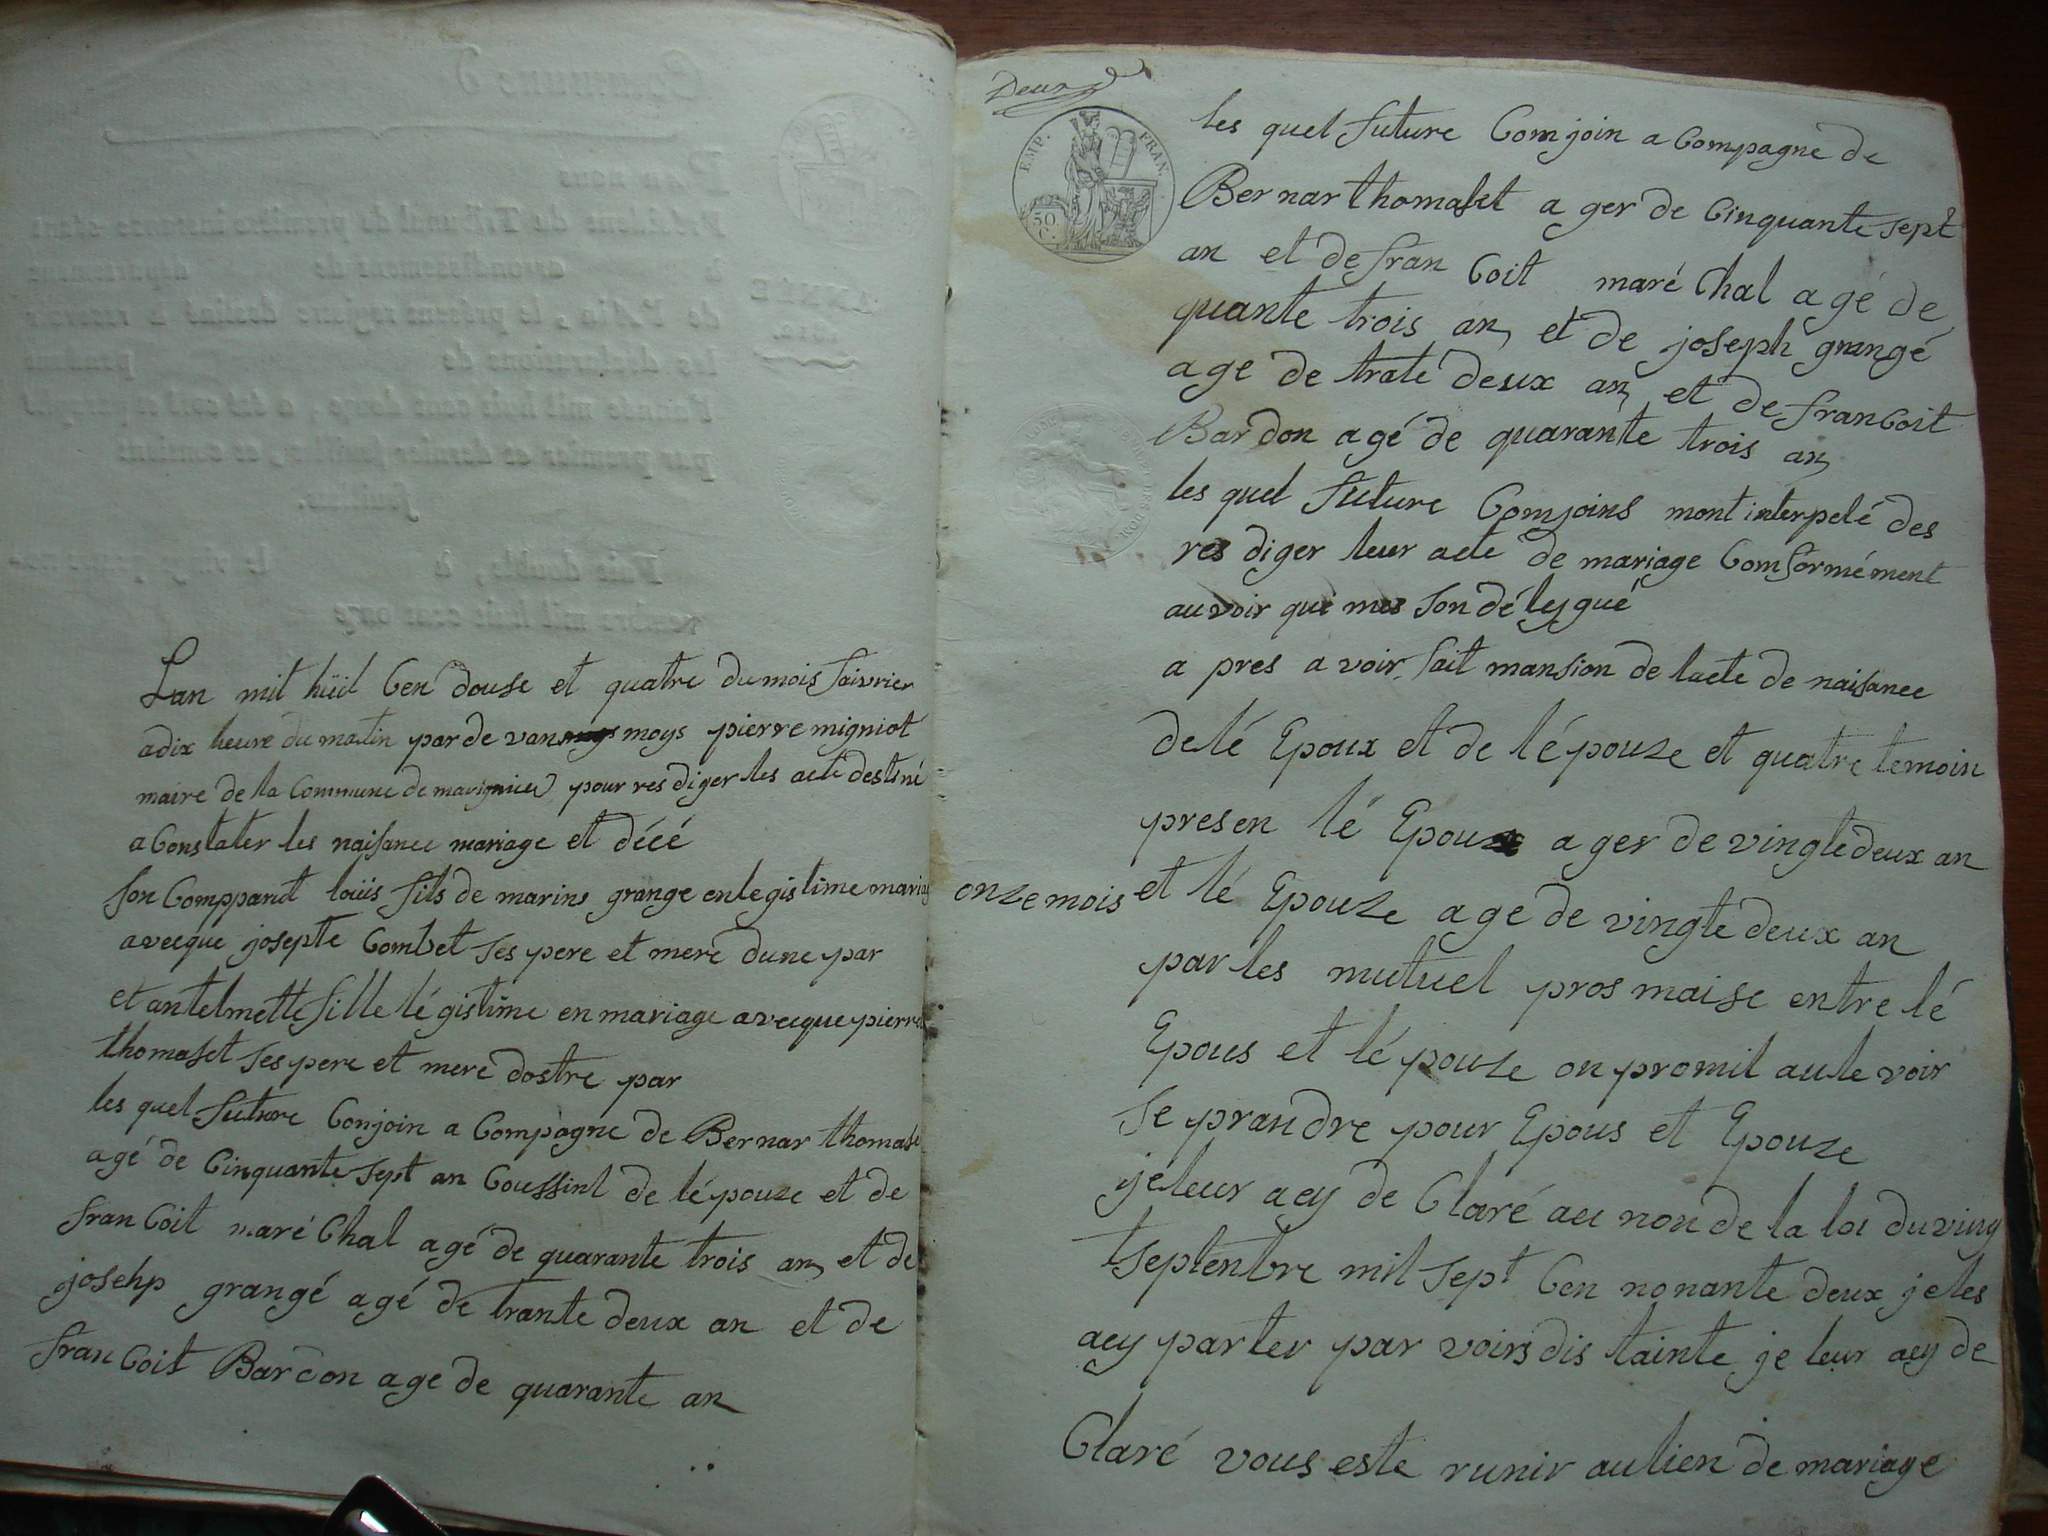 Lan mil hüit Cen douse et quatre du mois faivrier
adix heure du matin par de van moys pierre migniot
maire de la Commune de marignieu pour res diger les acte destiné
a Constater les naisance mariage et décé
son Comppant loüis fils de marins grange enlegistime mariag
avecque josepte Combet ses pere et mere dune par
et antelmette fille légistime en mariage avecque pierre
thomaset ses pere et mere dostre par
les quel future Conjoin a Compagne de Bernar thomase
agé de Cinquante sept an Coussint de lépouze et de
fran Coit maré Chal agé de quarante trois an et de
josehp grangé agé de trante deux an et de
fran Coit Bardon age de quarante an
Deux
EMP. FRAN.
50 C.
les quel future Comjoin a Compagne de
Bernar thomaset a ger de Cinquante sept
an et de fran Coit maré Chal agé de
quante trois an et de joseph grangé
age de trate deux an et de franCoit
Bardon agé de quarante trois an
les quel future Comjoins mont interpelé des
res diger leur acte de mariage Comformément
auvoir que mes son déleygué
a pres a voir fait mansion de lacte de naisance
delé Epoux et de lépouze et quatre temoin
presen lé Epoux a ger de vingte deux an
onze mois et lé Epouze age de vingte deux an
par les mutuel pros maise entre lé
Epous et lé pouze on promit aute voir
se prandre pour Epous et Epouze
je leur aey de Claré au non de la loi du ving
tseptentre mil sept Cen nonante deux je les
aey parter par voirs dis tainte je leur aey de
Claré vous este runir au lien de mariage